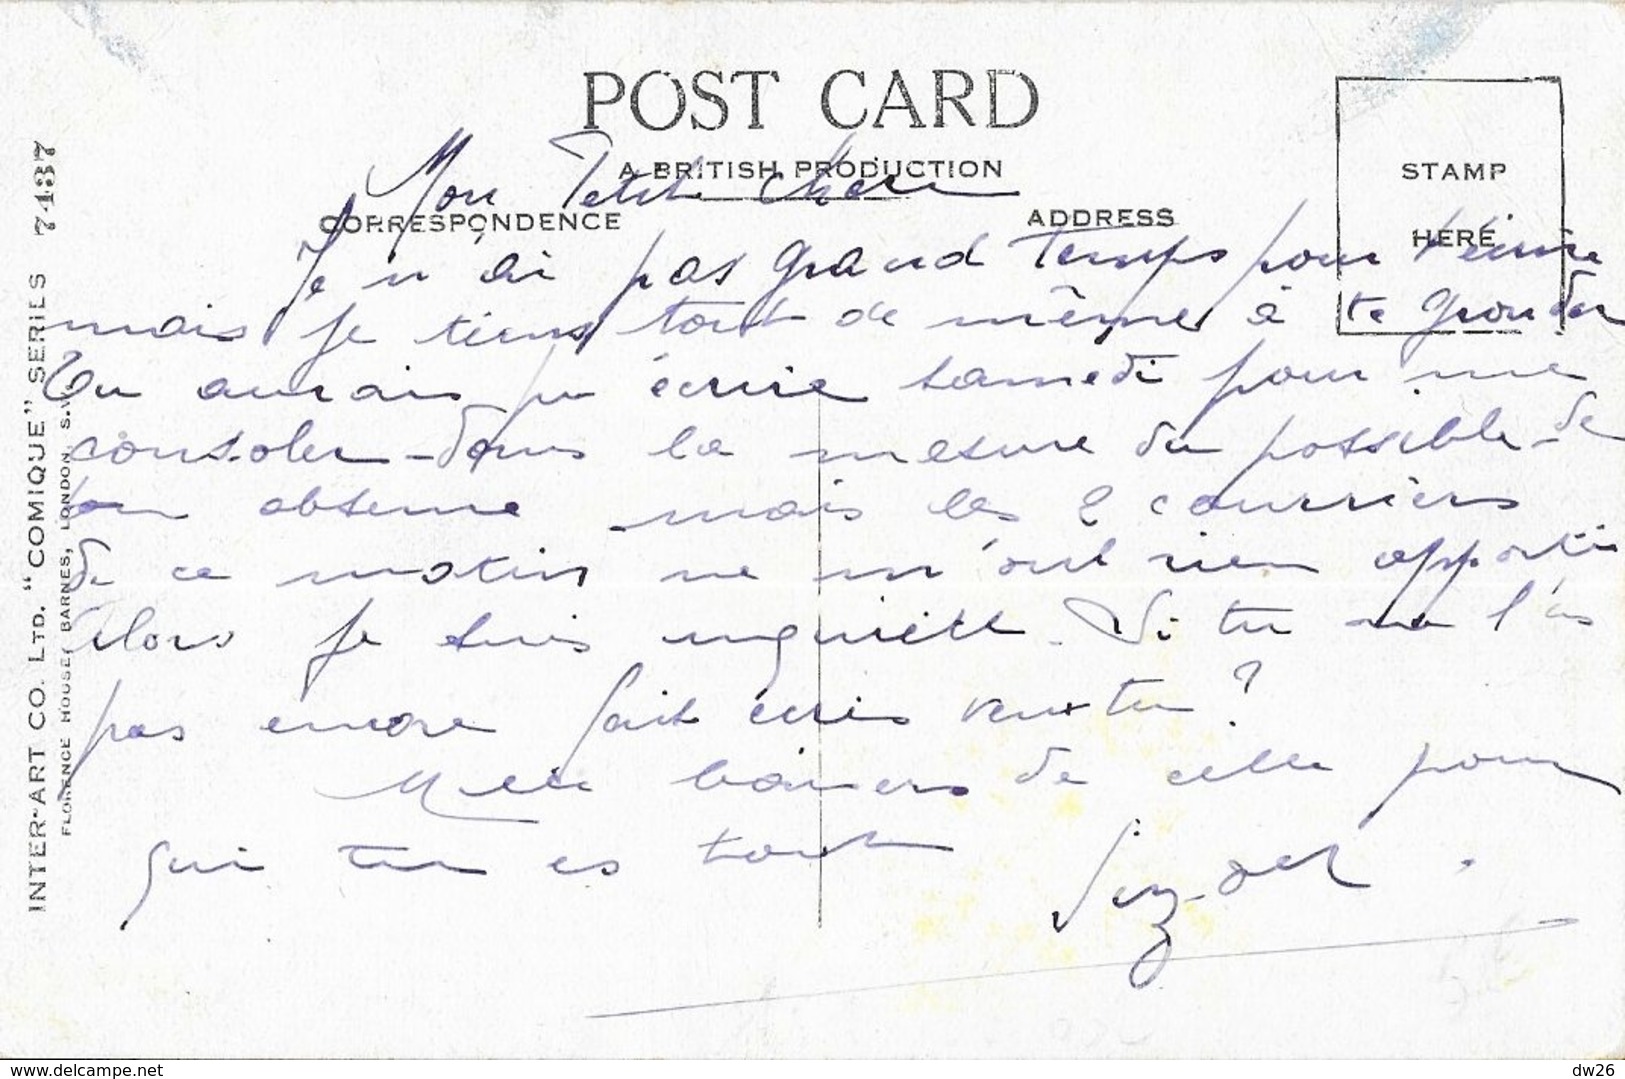 POST CARD
A BRITISH PRODUCTION
Mon Petit Cheri
CORRESPONDENCE
ADDRESS
STAMP
HERE
Je n'ai pas grand temps pour t'écrire
mais je tiens tout de même à te gronder
Tu aurais pu écrire samedi pour me
consoler - dans la mesure du possible - de
ton absence mais les 2 courriers
de ce matin ne m'ont rien apporté
Alors je suis inquiète. Si tu ne l'as
pas encore fait écris veux tu ?
Mille baisers de celle pour
qui tu es tout
INTER-ART CO. LTD. "COMIQUE" SERIES 7437
FLORENCE HOUSE, BARNES, LONDON, S.W.
delcampe.net
dw26